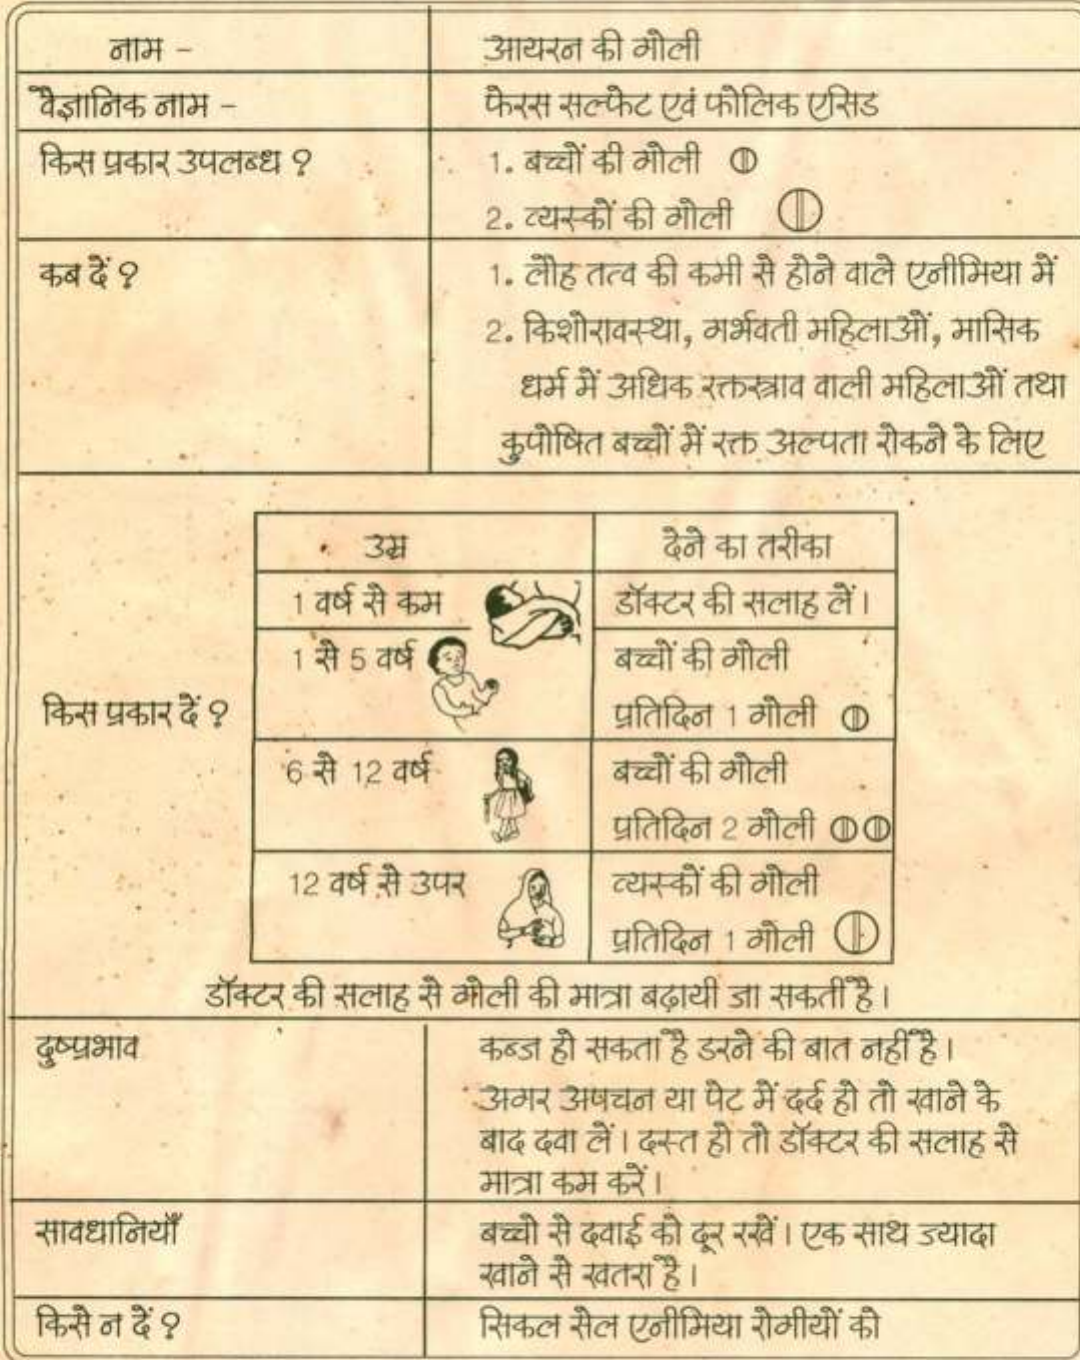 नाम -
आयरन की गोली
वैज्ञानिक नाम -
फेरस सल्फेट एवं फोलिक एसिड
किस प्रकार उपलब्ध ?
1. बच्चों की गोली
2. व्यस्कों की गोली
कब दें ?
1. लौह तत्व की कमी से होने वाले एनीमिया में
2. किशोरावस्था, गर्भवती महिलाओं, मासिक
धर्म में अधिक रक्तस्त्राव वाली महिलाओं तथा
कुपोषित बच्चों में रक्त अल्पता रोकने के लिए
किस प्रकार दें ?
उम्र
देने का तरीका
1 वर्ष से कम
डॉक्टर की सलाह लें।
1 से 5 वर्ष
बच्चों की गोली
प्रतिदिन 1 गोली
6 से 12 वर्ष
बच्चों की गोली
प्रतिदिन 2 गोली
12 वर्ष से उपर
व्यस्कों की गोली
प्रतिदिन 1 गोली
डॉक्टर की सलाह से गोली की मात्रा बढ़ायी जा सकतीं है।
दुष्प्रभाव
कब्ज हो सकता है डरने की बात नहीं है।
अगर अपचन या पेट में दर्द हो तो खाने के
बाद दवा लें। दस्त हो तो डॉक्टर की सलाह से
मात्रा कम करें।
सावधानियाँ
बच्चो से दवाई को दूर रखें। एक साथ ज्यादा
खाने से खतरा है।
किसे न दें ?
सिकल सेल एनीमिया रोगीयों को